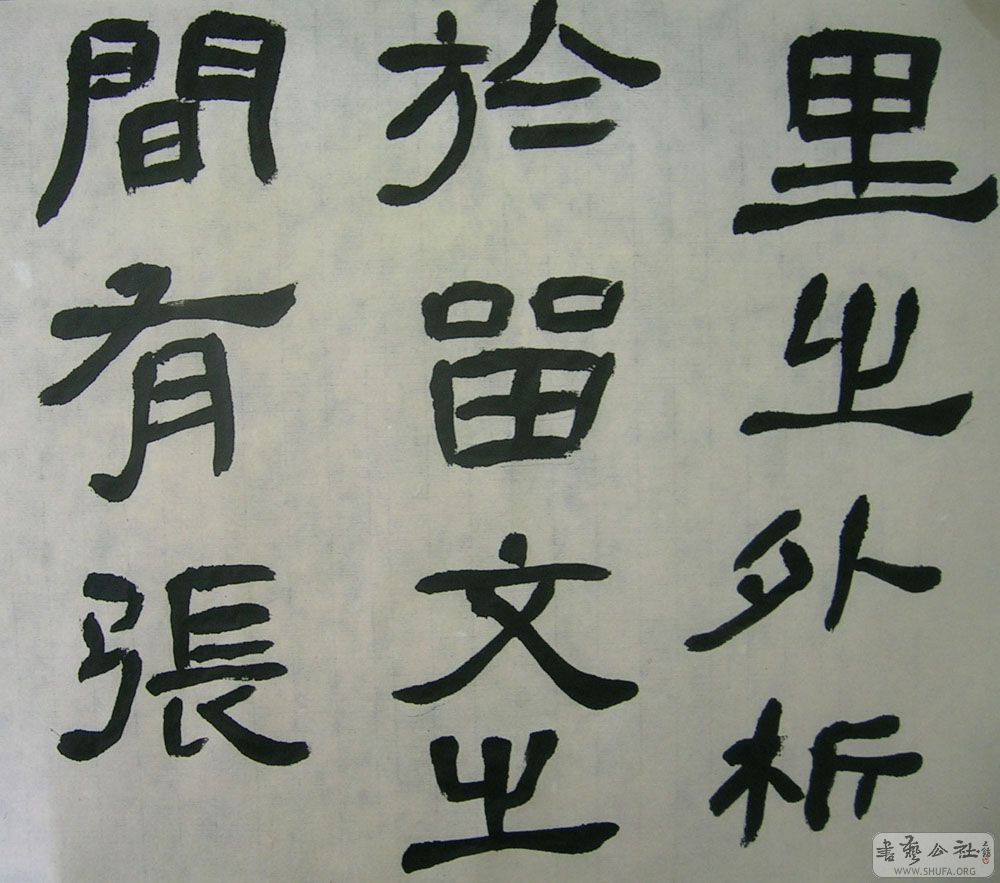 里之外析
於留文之
間有張
書藝公社
WWW.SHUFA.ORG